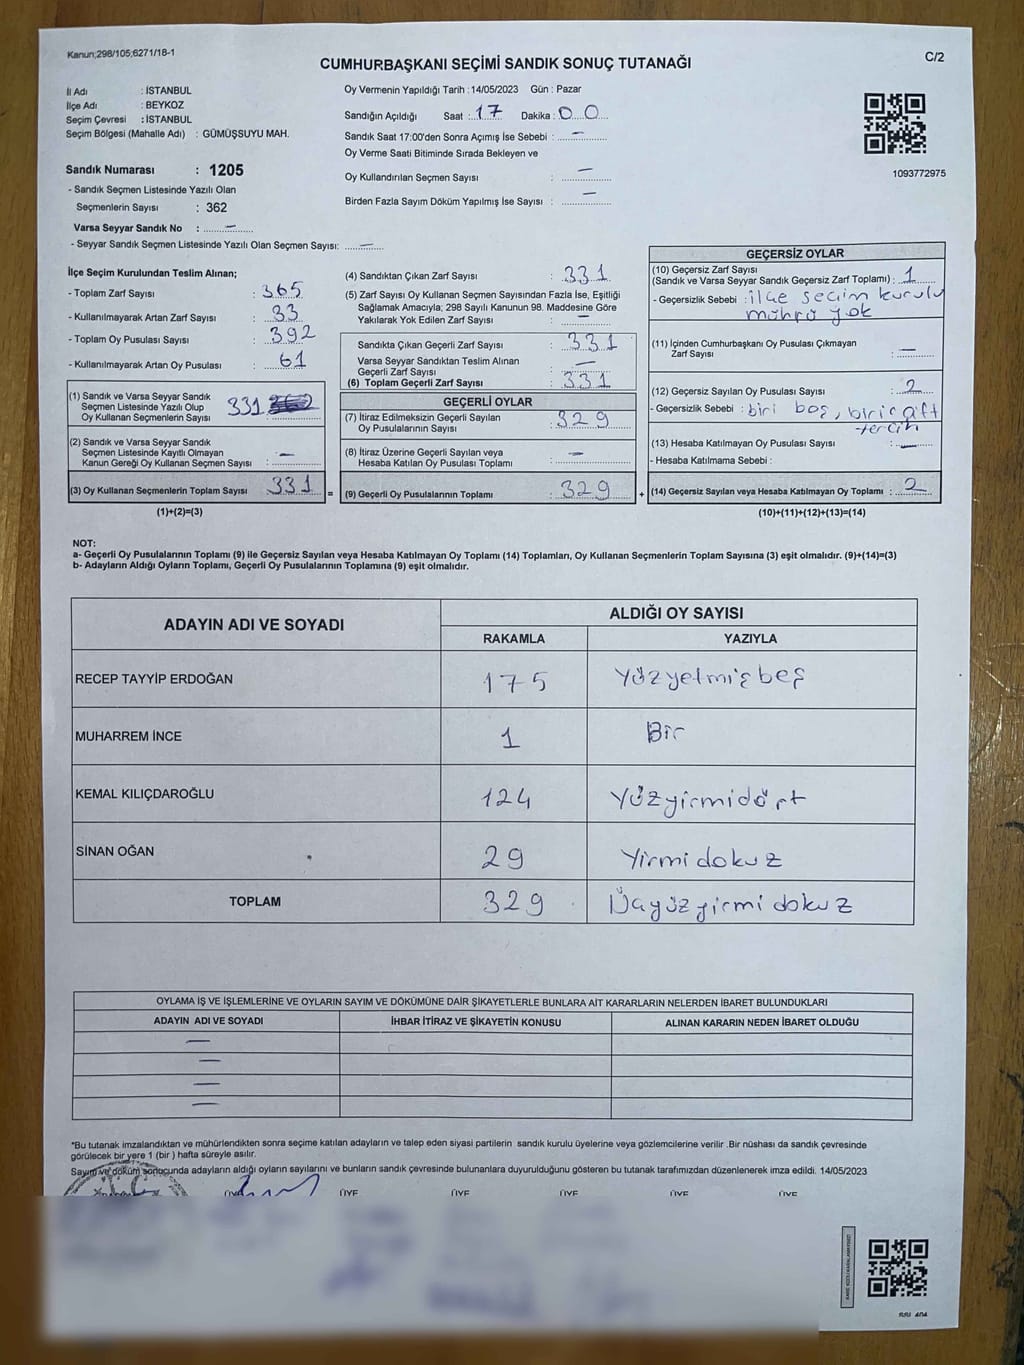 Kanun;298/105;6271/18-1
CUMHURBAŞKANI SEÇİMİ SANDIK SONUÇ TUTANAĞI
C/2
İl Adı : İSTANBUL
İlçe Adı : BEYKOZ
Seçim Çevresi : İSTANBUL
Seçim Bölgesi (Mahalle Adı) : GÜMÜŞSUYU MAH.
Sandık Numarası : 1205
- Sandık Seçmen Listesinde Yazılı Olan
Seçmenlerin Sayısı : 362
Varsa Seyyar Sandık No : —
- Seyyar Sandık Seçmen Listesinde Yazılı Olan Seçmen Sayısı: —
Oy Vermenin Yapıldığı Tarih : 14/05/2023 Gün : Pazar
Sandığın Açıldığı Saat : 17 Dakika : 00
Sandık Saat 17:00'den Sonra Açımış İse Sebebi : —
Oy Verme Saati Bitiminde Sırada Bekleyen ve
Oy Kullandırılan Seçmen Sayısı : —
Birden Fazla Sayım Döküm Yapılmış İse Sayısı : —
1093772975
İlçe Seçim Kurulundan Teslim Alınan;
- Toplam Zarf Sayısı : 365
- Kullanılmayarak Artan Zarf Sayısı : 33
- Toplam Oy Pusulası Sayısı : 392
- Kullanılmayarak Artan Oy Pusulası : 61
(1) Sandık ve Varsa Seyyar Sandık
Seçmen Listesinde Yazılı Olup
Oy Kullanan Seçmenlerin Sayısı : 331
(2) Sandık ve Varsa Seyyar Sandık
Seçmen Listesinde Kayıtlı Olmayan
Kanun Gereği Oy Kullanan Seçmen Sayısı : —
(3) Oy Kullanan Seçmenlerin Toplam Sayısı 331
(1)+(2)=(3)
(4) Sandıktan Çıkan Zarf Sayısı : 331
(5) Zarf Sayısı Oy Kullanan Seçmen Sayısından Fazla İse, Eşitliği
Sağlamak Amacıyla; 298 Sayılı Kanunun 98. Maddesine Göre
Yakılarak Yok Edilen Zarf Sayısı : —
Sandıkta Çıkan Geçerli Zarf Sayısı : 331
Varsa Seyyar Sandıktan Teslim Alınan
Geçerli Zarf Sayısı : —
(6) Toplam Geçerli Zarf Sayısı : 331
GEÇERLİ OYLAR
(7) İtiraz Edilmeksizin Geçerli Sayılan
Oy Pusulasının Sayısı : 329
(8) İtiraz Üzerine Geçerli Sayılan veya
Hesaba Katılan Oy Pusulası Toplamı : —
= (9) Geçerli Oy Pusulalarının Toplamı : 329 +
GEÇERSİZ OYLAR
(10) Geçersiz Zarf Sayısı
(Sandık ve Varsa Seyyar Sandık Geçersiz Zarf Toplamı) : 1
- Geçersizlik Sebebi : ilçe seçim kurulu
mührü yok
(11) İçinden Cumhurbaşkanı Oy Pusulası Çıkmayan
Zarf Sayısı : —
(12) Geçersiz Sayılan Oy Pusulası Sayısı : 2
- Geçersizlik Sebebi : biri boş, biri çift
tercih
(13) Hesaba Katılmayan Oy Pusulası Sayısı : —
- Hesaba Katılmama Sebebi :
(14) Geçersiz Sayılan veya Hesaba Katılmayan Oy Toplamı : 2
(10)+(11)+(12)+(13)=(14)
NOT:
a- Geçerli Oy Pusulalarının Toplamı (9) ile Geçersiz Sayılan veya Hesaba Katılmayan Oy Toplamı (14) Toplamları, Oy Kullanan Seçmenlerin Toplam Sayısına (3) eşit olmalıdır. (9)+(14)=(3)
b- Adayların Aldığı Oyların Toplamı, Geçerli Oy Pusulalarının Toplamına (9) eşit olmalıdır.
ADAYIN ADI VE SOYADI ALDIĞI OY SAYISI
RAKAMLA YAZIYLA
RECEP TAYYİP ERDOĞAN 175 Yüzyetmişbeş
MUHARREM İNCE 1 Bir
KEMAL KILIÇDAROĞLU 124 Yüzyirmidört
SİNAN OĞAN 29 Yirmidokuz
TOPLAM 329 Üçyüzyirmidokuz
OYLAMA İŞ VE İŞLEMLERİNE VE OYLARIN SAYIM VE DÖKÜMÜNE DAİR ŞİKAYETLERLE BUNLARA AİT KARARLARIN NELERDEN İBARET BULUNDUKLARI
ADAYIN ADI VE SOYADI İHBAR İTİRAZ VE ŞİKAYETİN KONUSU ALINAN KARARIN NEDEN İBARET OLDUĞU
—
—
—
—
*Bu tutanak imzalandıktan ve mühürlendikten sonra seçime katılan adayların ve talep eden siyasi partilerin sandık kurulu üyelerine veya gözlemcilerine verilir .Bir nüshası da sandık çevresinde
görülecek bir yere 1 (bir ) hafta süreyle asılır.
Sayım ve döküm sonucunda adayların aldığı oyların sayılarını ve bunların sandık çevresinde bulunanlara duyurulduğunu gösteren bu tutanak tarafımızdan düzenlenerek imza edildi. 14/05/2023
ÜYE ÜYE ÜYE ÜYE ÜYE